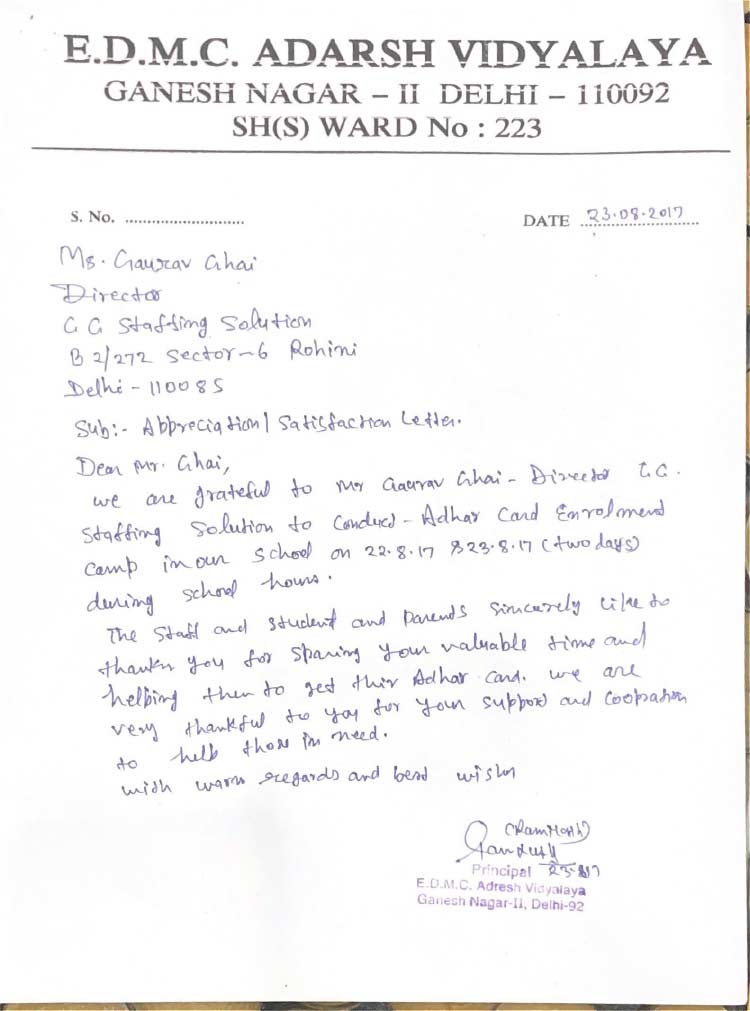 E.D.M.C. ADARSH VIDYALAYA
GANESH NAGAR – II DELHI – 110092
SH(S) WARD No : 223
S. No. ...........................
DATE 23.08.2017
Mr. Gaurav Ghai
Director
G G Staffing Solution
B 2/272 Sector-6 Rohini
Delhi - 110085
Sub:- Appreciation/ Satisfaction Letter.
Dear Mr. Ghai,
we are grateful to Mr Gaurav Ghai - Director G.G.
Staffing Solution to Conduct - Adhar Card Enrolment
Camp in our School on 22.8.17 & 23.8.17 (two days)
during school hours.
The Staff and student and parents sincerely like to
thank you for sparing your valuable time and
helping them to get their Adhar card. we are
very thankful to you for your support and Cooperation
to help those in need.
with warm regards and best wishes
Principal 23-8-17
E.D.M.C. Adresh Vidyalaya
Ganesh Nagar-II, Delhi-92